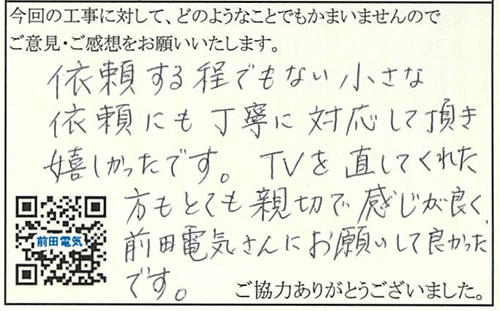 今回の工事に対して、どのようなことでもかまいませんので
ご意見・ご感想をお願いいたします。
依頼する程でもない小さな
依頼にも丁寧に対応して頂き
嬉しかったです。TVを直してくれた
方もとても親切で感じが良く、
前田電気さんにお願いして良かった
です。
前田電気
ご協力ありがとうございました。